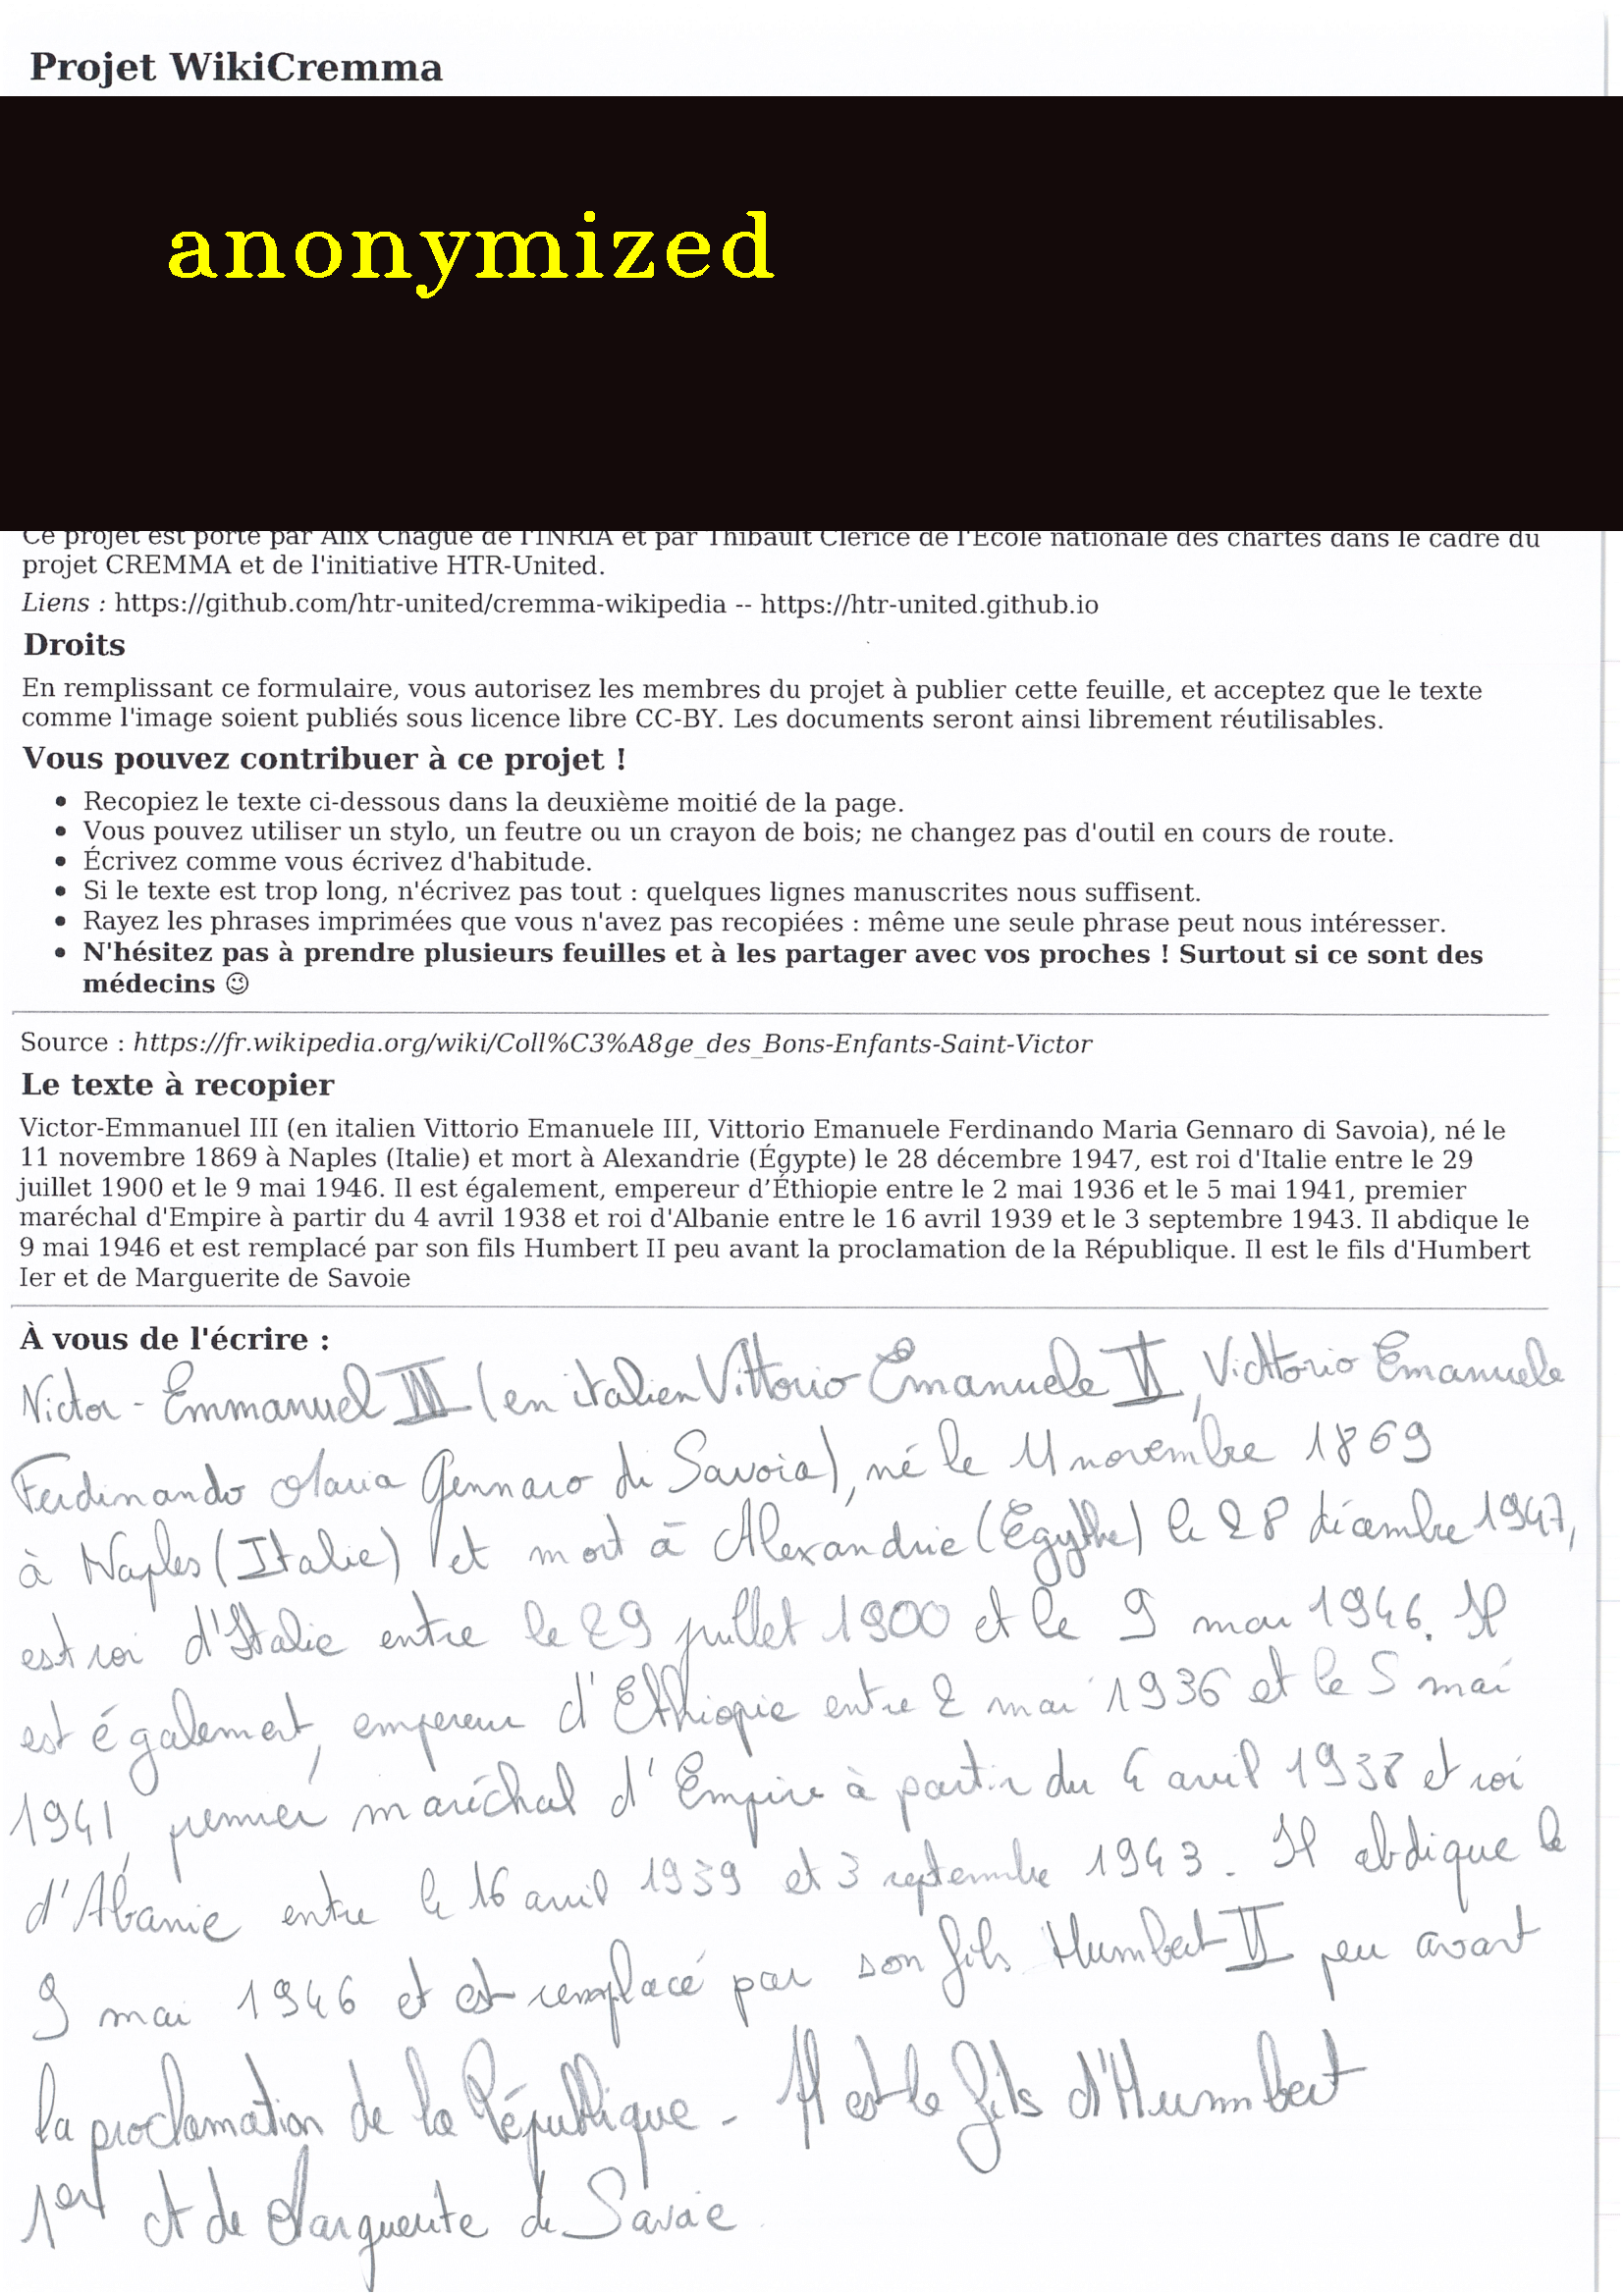 Projet WikiCremma
anonymized
Ce projet est porté par Alix Chagué de l'INRIA et par Thibault Clérice de l'École nationale des chartes dans le cadre du
projet CREMMA et de l'initiative HTR-United.
Liens : https://github.com/htr-united/cremma-wikipedia -- https://htr-united.github.io
Droits
En remplissant ce formulaire, vous autorisez les membres du projet à publier cette feuille, et acceptez que le texte
comme l'image soient publiés sous licence libre CC-BY. Les documents seront ainsi librement réutilisables.
Vous pouvez contribuer à ce projet !
• Recopiez le texte ci-dessous dans la deuxième moitié de la page.
• Vous pouvez utiliser un stylo, un feutre ou un crayon de bois; ne changez pas d'outil en cours de route.
• Écrivez comme vous écrivez d'habitude.
• Si le texte est trop long, n'écrivez pas tout : quelques lignes manuscrites nous suffisent.
• Rayez les phrases imprimées que vous n'avez pas recopiées : même une seule phrase peut nous intéresser.
• N'hésitez pas à prendre plusieurs feuilles et à les partager avec vos proches ! Surtout si ce sont des
médecins 😉
Source : https://fr.wikipedia.org/wiki/Coll%C3%A8ge_des_Bons-Enfants-Saint-Victor
Le texte à recopier
Victor-Emmanuel III (en italien Vittorio Emanuele III, Vittorio Emanuele Ferdinando Maria Gennaro di Savoia), né le
11 novembre 1869 à Naples (Italie) et mort à Alexandrie (Égypte) le 28 décembre 1947, est roi d'Italie entre le 29
juillet 1900 et le 9 mai 1946. Il est également, empereur d’Éthiopie entre le 2 mai 1936 et le 5 mai 1941, premier
maréchal d'Empire à partir du 4 avril 1938 et roi d'Albanie entre le 16 avril 1939 et le 3 septembre 1943. Il abdique le
9 mai 1946 et est remplacé par son fils Humbert II peu avant la proclamation de la République. Il est le fils d'Humbert
Ier et de Marguerite de Savoie
À vous de l'écrire :
Victor-Emmanuel III (en italien Vittorio Emanuele II, Victtorio Emanuele
Ferdinando Maria Gennaro di Savoia), né le 11 novembre 1869
à Naples (Italie) et mort à Alexandrie (Egypte) le 28 décembre 1947,
est roi d'Italie entre le 29 juillet 1900 et le 9 mai 1946. Il
est également, empereur d'Ethiopie entre 2 mai 1936 et le 5 mai
1941, premier maréchal d'Empire à partir du 4 avril 1938 et roi
d'Abanie entre le 16 avril 1939 et 3 septembre 1943. Il abdique le
9 mai 1946 et est remplacé par son fils Humbert II peu avant
la proclamation de la République. Il est le fils d'Humbert
1er et de Marguerite de Savoie.